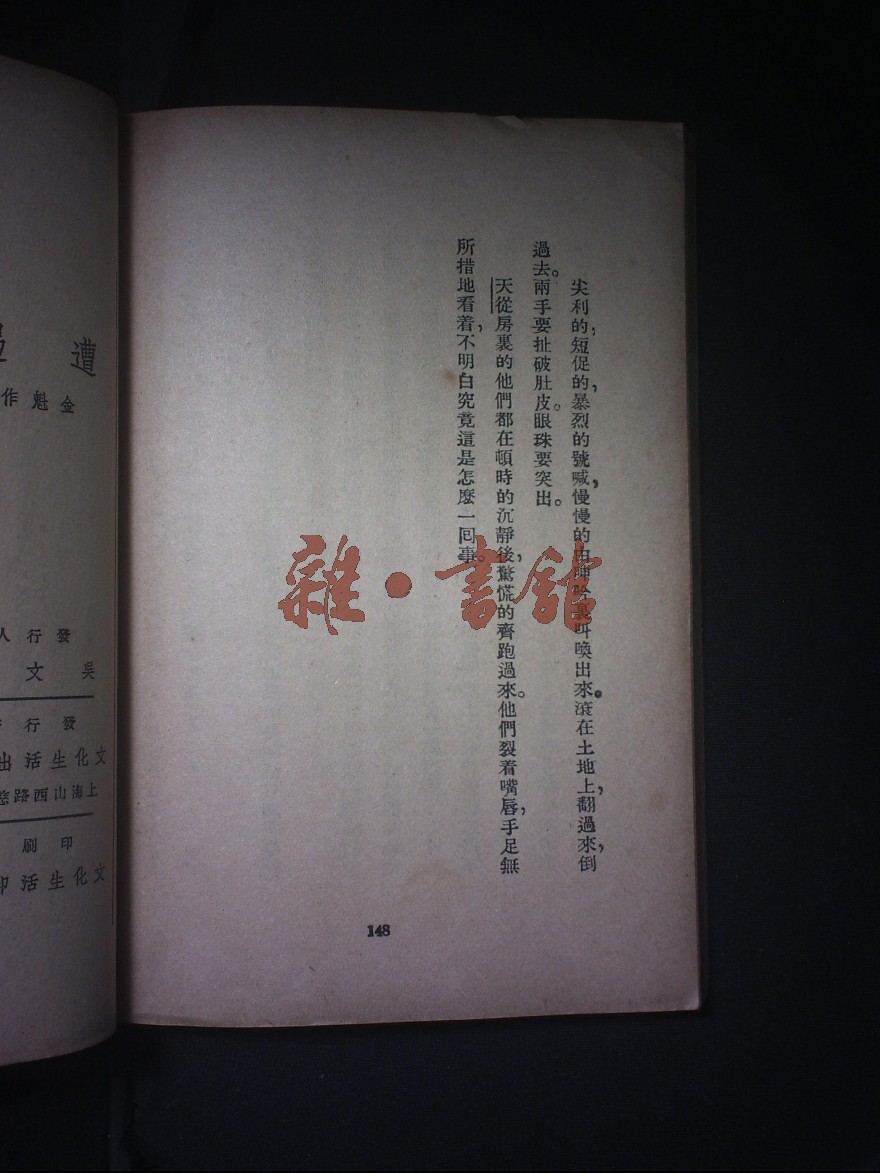 尖利的，短促的，暴烈的號喊，慢慢的由呻吟裏叫喚出來。滾在土地上，翻過來，倒
過去。兩手要扯破肚皮。眼珠要突出。
天從房裏的他們都在頓時的沉靜後，驚慌的齊跑過來。他們裂着嘴唇，手足無
所措地看着，不明白究竟這是怎麼一回事。
148
雜·書館
遭
金魁作
發行人
吳文
發行
文化生活出
上海山西路慈
印刷
文化生活印